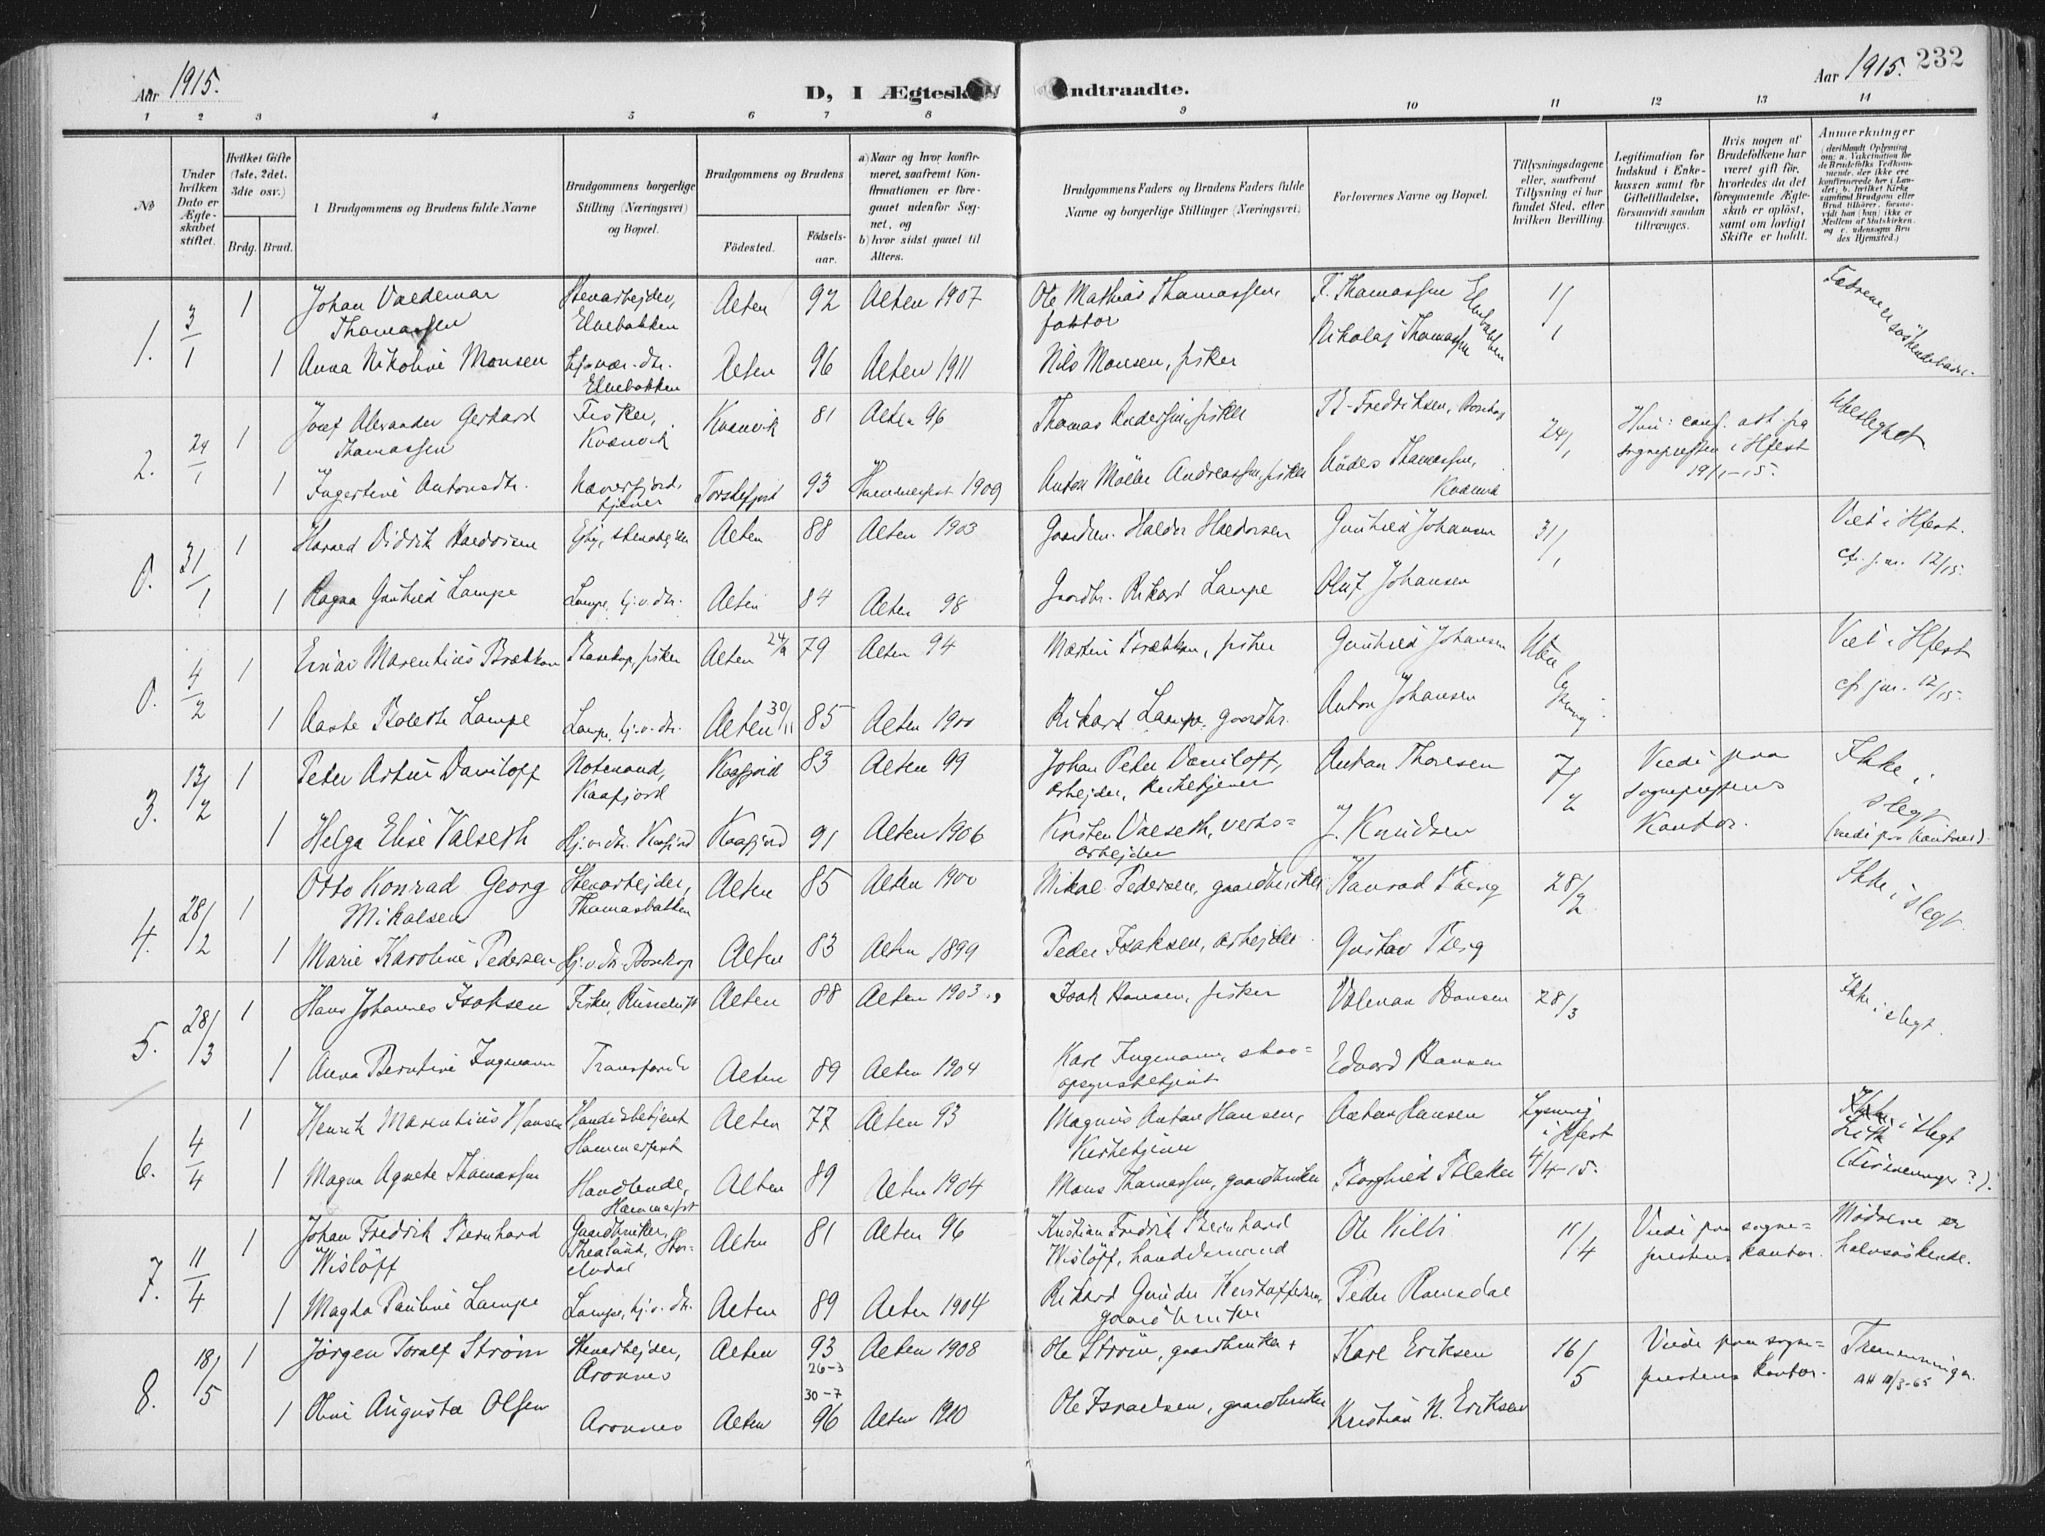 Aar 1915.
D, I Ægtesk
ndtraadte.
Aar 1915. 232
1 2 3 4 5 6 7 8 9 10 11 12 13 14
No
Under hvilken Dato er Ægteskabet stiftet.
Hvilket Gifte (1ste, 2det, 3die osv.)
Brdg. Brud.
Brudgommens og Brudens fulde Navne
Brudgommens borgerlige Stilling (Næringsvei) og Bopæl.
Brudgommens og Brudens
Födested.
Födsels-aar.
a) Naar og hvor konfirmeret, saafremt Konfirmationen er foregaaet udenfor Sognet, og
b) hvor sidst gaaet til Alters.
Brudgommens Faders og Brudens Faders fulde Navne og borgerlige Stillinger (Næringsvei)
Forlovernes Navne og Bopæl.
Tillysningsdagene eller, saafremt Tillysning ei har fundet Sted, efter hvilken Bevilling.
Legitimation for Indskud i Enkekassen samt for Giftetilladelse, forsaavidt saadan tiltrænges.
Hvis nogen af Brudefolkene har været gift för, hvorledes da det foregaaende Ægteskab er oplöst, samt om lovligt Skifte er holdt.
Anmærkninger
1. 3/1 1 Johan Valdemar Thomassen Stenarbejder, Elvebakken Alten 92 Alten 1907 Ole Mathias Thomassen, faktor T. Thomassen Elvebakken 1/1
1 Anna Nikoline Monsen Hj.vær. dtr. Elvebakken Alten 96 Alten 1911 Nils Monsen, fisker Nikolaj Thomassen
Fædrene er söskendebarn.
2. 24/1 1 Josef Alexander Gerhard Thomassen Fisker, Kvænvik Kvænvik 81 Alten 96 Thomas Andersen, fisker Fredriksen, Bosekop 24/1 conf. att fra sognepresten i Hfest 19/1-15. Ubeslegtet
1 Ingertine Antonsdtr. tjener 93 Hammerfest 1909 Anton Andreassen, fisker Thomassen,
0. 31/1 1 Harald Didrik Haldorsen Elby, stenarbejder Alten 88 Alten 1903 Gaardbr. Haldor Haldorsen Gunhild Johansen 31/1 Viet i Hfest. cfr. j.nr. 12/15.
1 Ragna Gunhild Lampe Lampe, hj.v.dtr. Alten 84 Alten 98 Gaardbr. Rikard Lampe Oluf Johansen
0. 4/2 1 Einar Marentius Brækkan Bosekop, fisker Alten 79 Alten 94 Martin Brækkan, fisker Gunhild Johansen Uden lysning. Viet i Hfest cfr j.nr. 12/15.
1 Aaste Bolette Lampe Lampe, hj.v.dtr. Alten 30/11 85 Alten 1900 Rikard Lampe, gaardbr. Anton Johansen
3. 13/2 1 Peder Artur Daniloff Notemand, Kaafjord Kaafjord 83 Alten 99 Johan Peter Daniloff, arbejder, kirketjener Anton Thoresen 7/2 Viedi paa sogneprestens Kontor. Ikke i slegt
1 Helga Elise Valseth Hj.v.dtr. Kaafjord Kaafjord 91 Alten 1906 Kristen Valseth, verksarbejder J. Knudsen
4. 28/2 1 Otto Konrad Georg Mikalsen Stenarbejder, Thomasbakken Alten 85 Alten 1900 Mikal Pedersen, gaardbruker Konrad Berg 28/2 Ikke i slegt
1 Marie Karoline Pedersen Hj.v.dtr. Bosekop Alten 83 Alten 1899 Peder Isaksen, arbejder Gustav Berg
5. 28/3 1 Hans Johannes Isaksen Fisker, Russeluft Alten 88 Alten 1903. Isak Hansen, fisker Hansen 28/3 Ikke i slegt.
1 Anna Berntine Ingmann Transfarelv Alten 89 Alten 1904 Karl Ingmann, skovopsynsbetjent Edvard Hansen
6. 4/4 1 Henrik Marentius Hansen Handelsbetjent Hammerfest Alten 77 Alten 93 Magnus Anton Hansen, Kirketjener Anton Hansen Lysning i Hfest 4/4-15. Ikke i slegt
1 Magna Agnete Thomassen Handlende, Hammerfest Alten 89 Alten 1904 Mons Thomassen, gaardbruker Borghild Blaker (Firmenninger?).
7. 11/4 1 Johan Fredrik Bernhard Wislöff Gaardbruker, Alten 81 Alten 96 Kristian Fredrik Bernhard Wislöff, handelsmand Ole 11/4 Viedi paa sogneprestens kontor. Mödrene er halvsöskende.
1 Magda Pauline Lampe Lampe, hj.v.dtr. Alten 89 Alten 1904 Rikard Gunder Kristoffersen, gaardbruker Peder Romsdal
8. 18/5 1 Jörgen Toralf Ström Stenarbejder, Aronnes Alten 93 26-3 Alten 1908 Ole Ström, gaardbruker Karl Eriksen 16/5 Viedi paa sogneprestens kontor. Tremenninger. AH 11/3-65
1 Oline Augusta Olsen Aronnes Alten 30-7 96 Alten 1910 Ole Israelsen, gaardbruker Kristian N. Eriksen